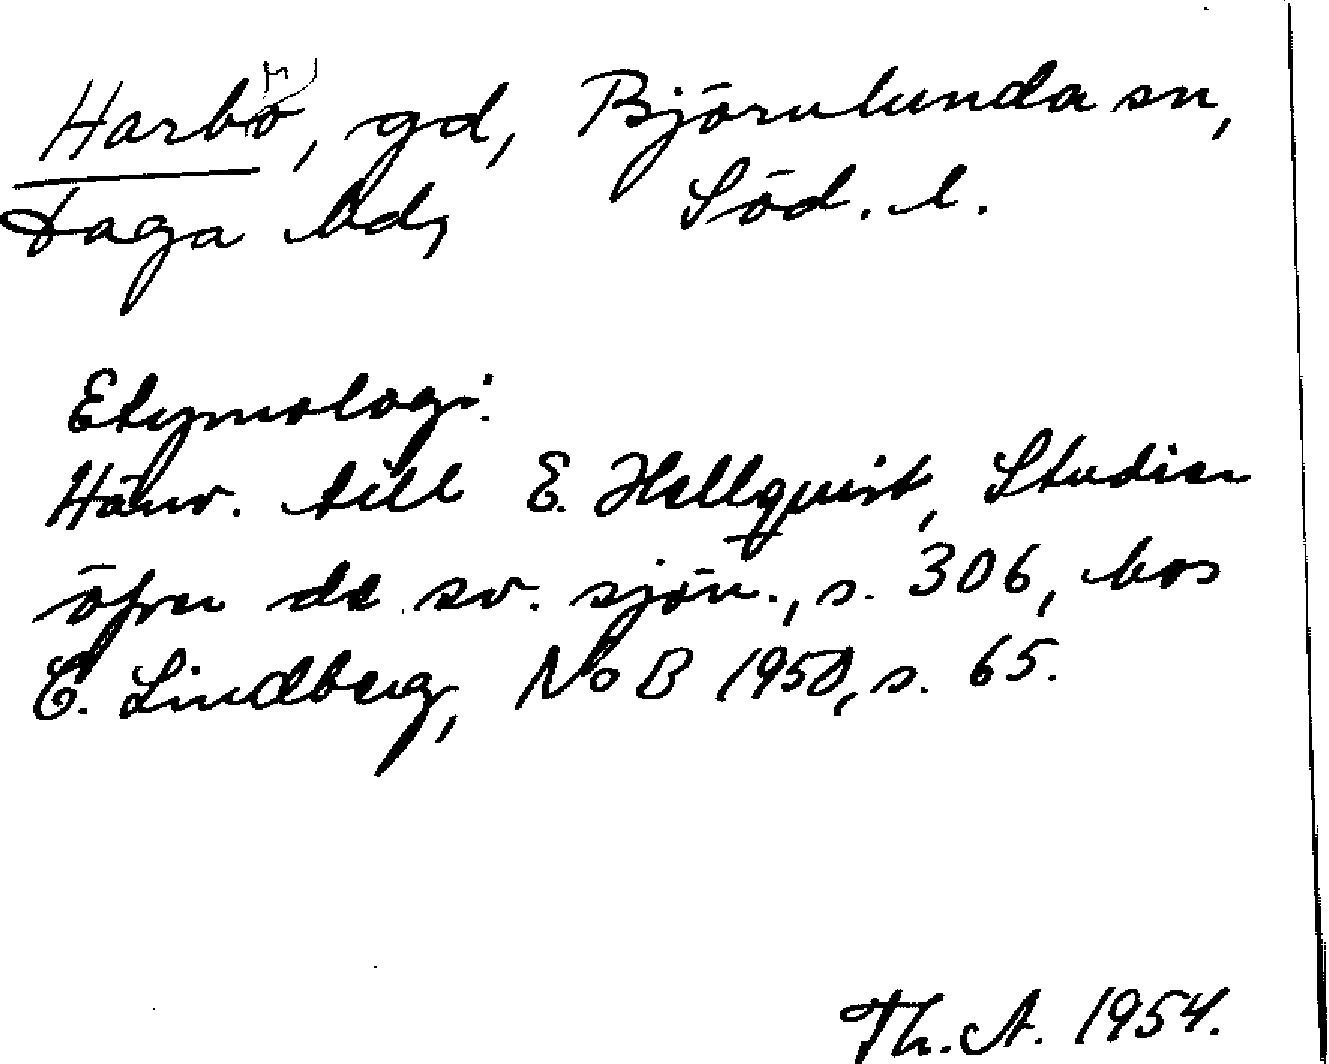 Harbo, gd, Björnlunda sn,
Daga hd, Söd. l.
Etymologi:
Hänv. till E. Hellquist, Studier
öfver de sv. sjön., s. 306, hos
C. Lindberg, NoB 1950, s. 65.
Th. A. 1954.